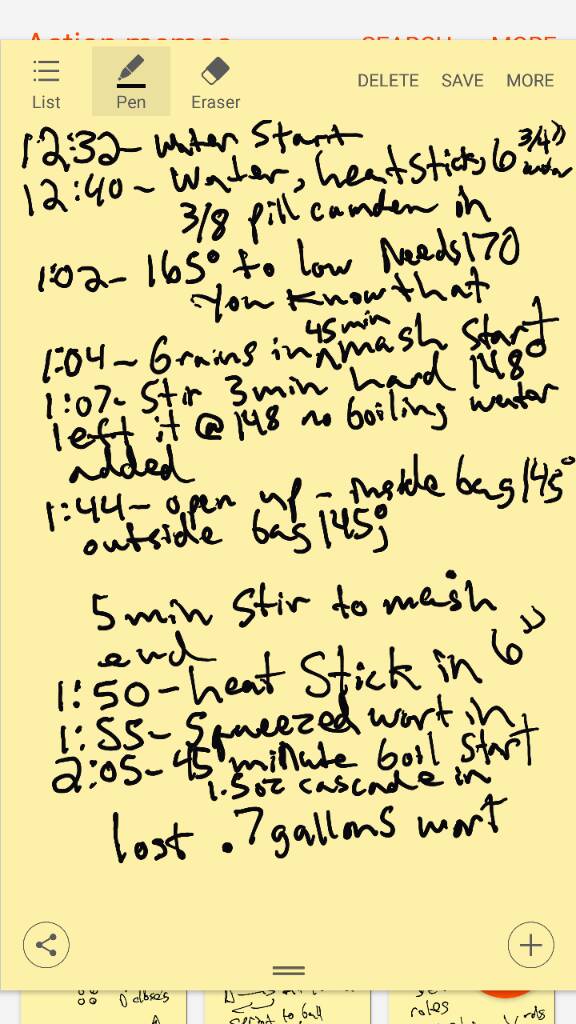 Action memos SEARCH MORE
List Pen Eraser DELETE SAVE MORE
12:32- Water Start
12:40- Water, heatstick, 6 3/4" water
3/8 pill camden in
1:02- 165° to low Needs 170
You Know that
1:04- Grains in 45min mash Start
1:07- Stir 3min hard 148°
left it @ 148 no boiling water
added
1:44- open up - inside bag 145°
outside bag 145°
5 min Stir to mash
end
1:50-heat Stick in 6"
1:55- Squeezed wort in
2:05-45 minute boil Start
1.5oz cascade in
lost .7 gallons wort
script to ball
rates